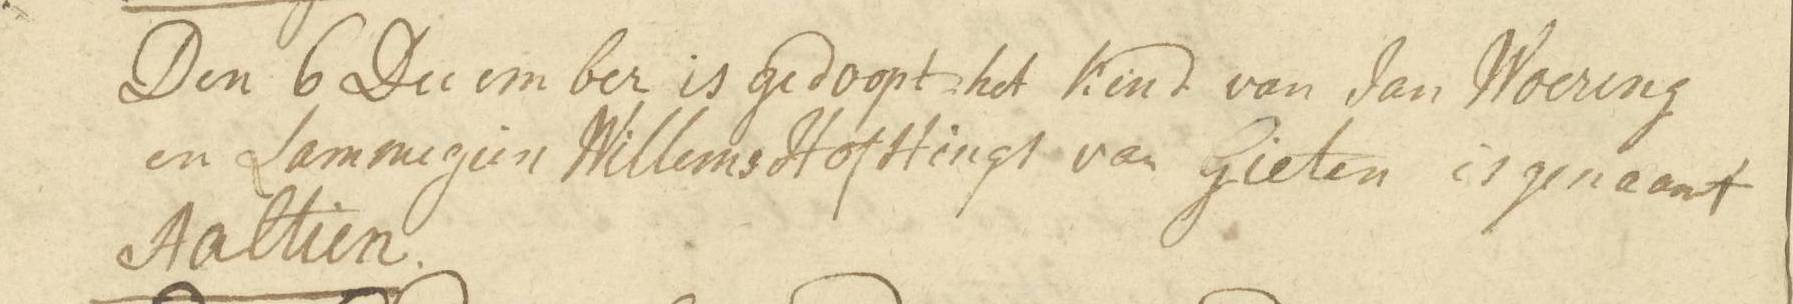 Den 6 December is gedoopt het Kind van Jan Woering
en Lammegien Willems Hofstings van Gieten is genaamt
Aaltien.